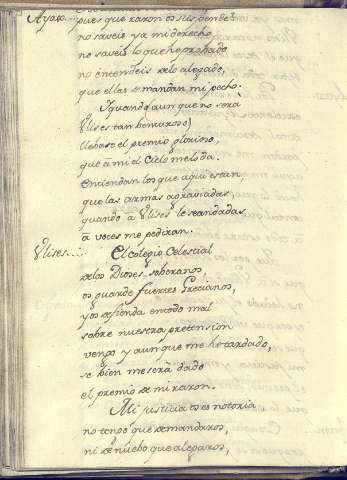 Ayax... pues que raron os suspende?
no saveis ya mi derecho
no saveis lo que he probado
no entendeis de lo alegado,
que ellas demandan mi pecho.
Y quando aun que no sera
Ulises tan benturoso)
llebase el premio glorioso,
que a mi el Cielo me lo da.
entiendan los que aqui estan,
que las armas agraviadas,
quando a Ulises le seran dadas
a voces me pediran.
Ulises.... El colegio Celestial
de los Dioses soberanos,
os guarde fuertes Grecianos,
y os defienda en todo mal
sobre nuestra pretension
vengo y aunque me he tardado,
se bien me será dado
el premio de mi raron.
Mi justicia os es notoria
no tengo que demandaros,
ni de nuebo que alegaros,